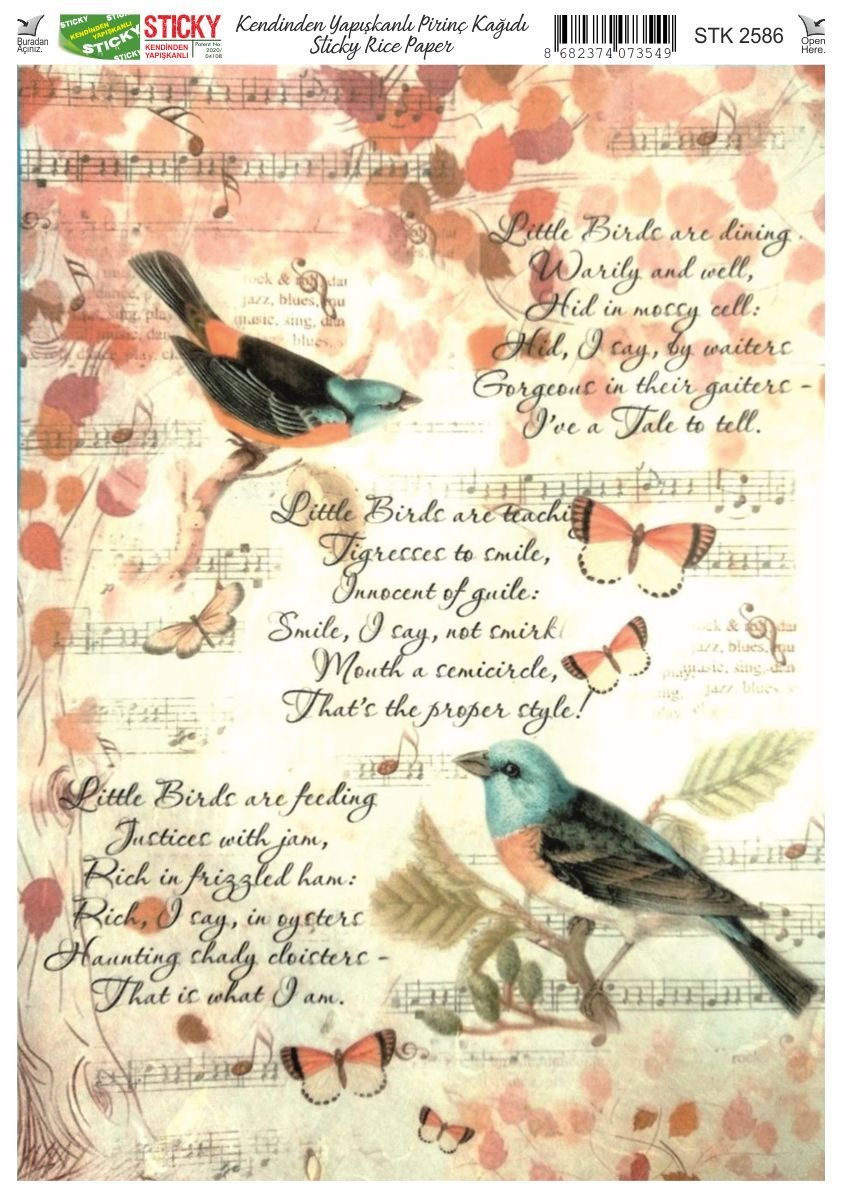 Buradan
Açınız.
STICKY
STICKY
KENDİNDEN
YAPIŞKANLI
STICKY
STICKY
STICKY
KENDİNDEN
YAPIŞKANLI
Patent No:
2020/
04108
Kendinden Yapışkanlı Pirinç Kağıdı
Sticky Rice Paper
8 682374 073549
STK 2586
Open
Here.
Little Birds are dining
Warily and well,
Hid in mossy cell:
Hid, I say, by waiters
Gorgeous in their gaiters -
I've a Tale to tell.
rock & roll, dan
jazz, blues,
music, sing, dan
blues,
Little Birds are teachi
Tigresses to smile,
Innocent of guile:
Smile, I say, not smirk
Mouth a semicircle,
That's the proper style!
rock &
jazz, blues,
music, sing, dan
jazz, blues
Little Birds are feeding
Justices with jam,
Rich in frizzled ham:
Rich, I say, in oysters
Haunting shady cloisters -
That is what I am.
rock